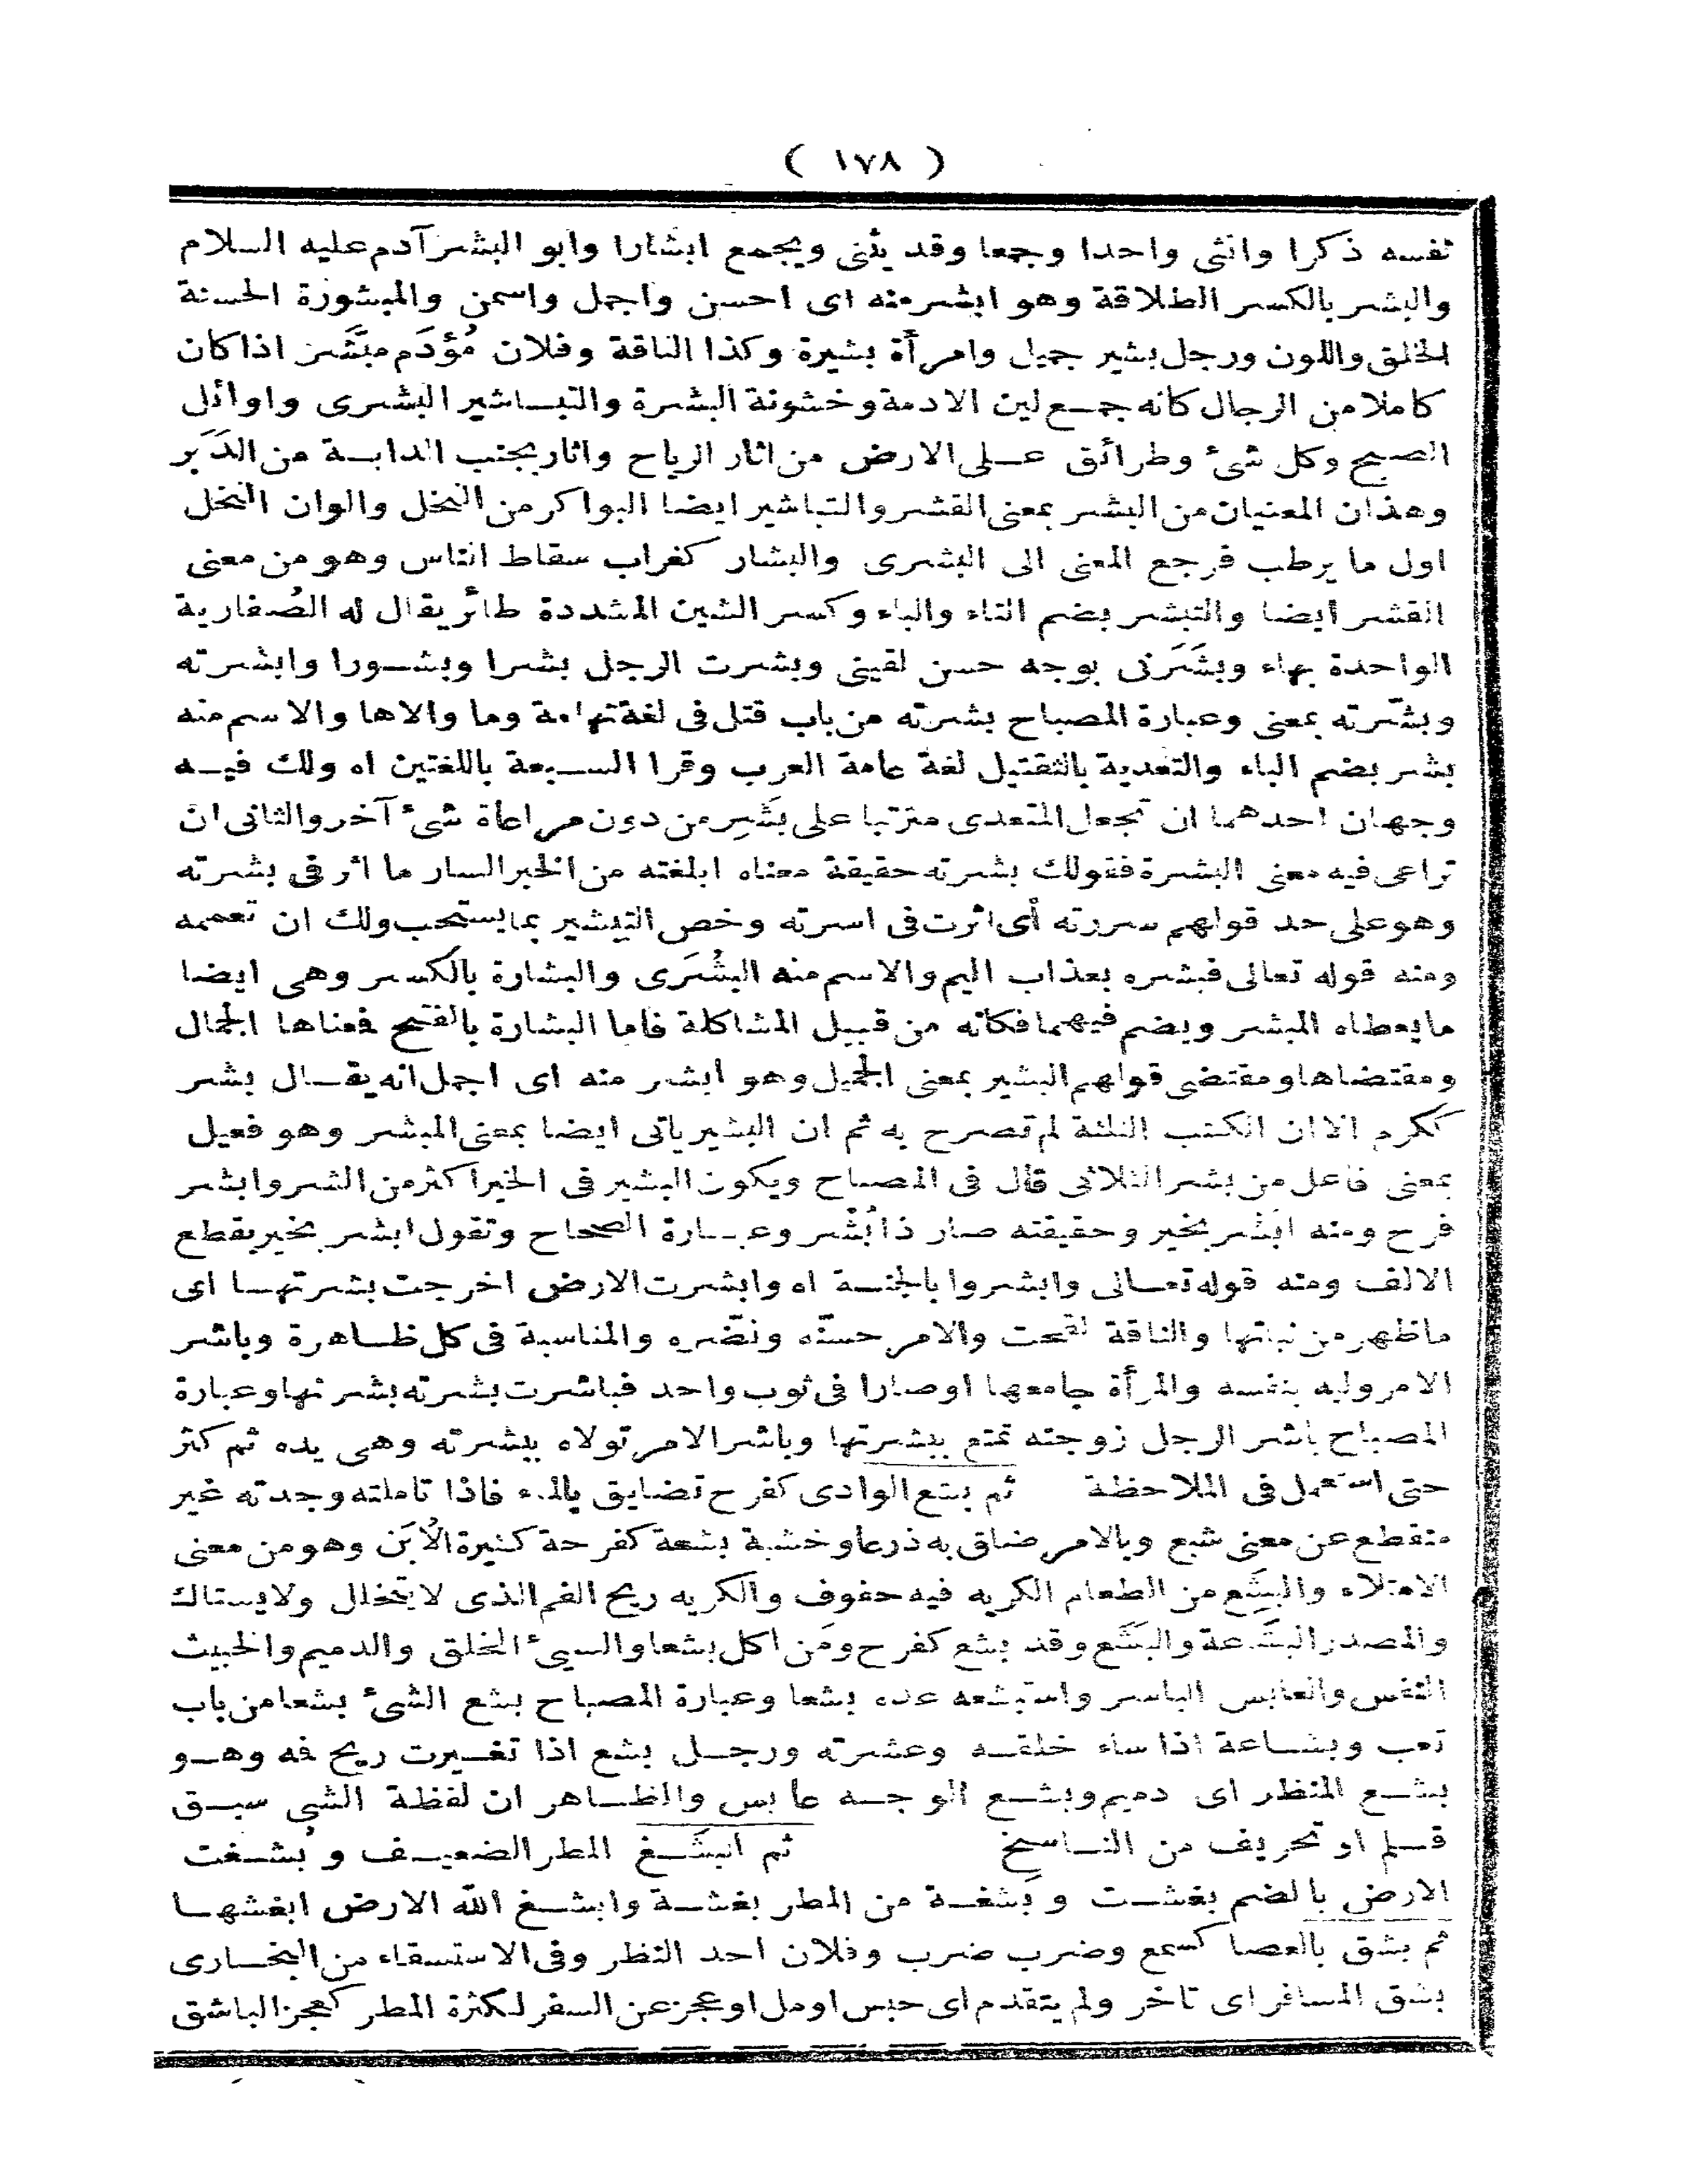 ( ١٧٨ )
نفسه ذكرا وانثى واحدا وجمعا وقد يثنى ويجمع ابشارا وابو البشر آدم عليه السلام
والبشر بالكسر الطلاقة وهو ابشر منه اى احسن واجمل واسمن والمبشورة الحسنة
الخلق واللون ورجل بشير جميل وامرأة بشيرة وكذا الناقة وفلان مُؤْدَم مبَشَّر اذا كان
كاملا من الرجال كانه جمع لين الادمة وخشونة البشرة والتباشير البشرى واوائل
الصبح وكل شئ وطرائق على الارض من اثار الرياح واثار بجنب الدابة من الدَبَر
وهذان المعنيان من البشر بمعنى القشر والتباشير ايضا البواكر من النخل والوان النخل
اول ما يرطب فرجع المعنى الى البشرى والبشار كغراب سقاط الناس وهو من معنى
القشر ايضا والتبشر بضم التاء والباء وكسر الشين المشددة طائر يقال له الصُفارية
الواحدة بهاء وبشَرَنى بوجه حسن لقينى وبشرت الرجل بشرا وبشورا وابشرته
وبشّرته بمعنى وعبارة المصباح بشرته من باب قتل فى لغة تهامة وما والاها والاسم منه
بشر بضم الباء والتعدية بالتثقيل لغة عامة العرب وقرا السبعة باللغتين اه ولك فيه
وجهان احدهما ان تجعل المتعدى مترتبا على بَشِر من دون مراعاة شئ آخر والثانى ان
تراعى فيه معنى البشرة فقولك بشرته حقيقة معناه ابلغته من الخبر السار ما اثر فى بشرته
وهو على حد قولهم سررته أى اثرت فى اسرته وخص التبشير بما يستحب ولك ان تعممه
ومنه قوله تعالى فبشره بعذاب اليم والاسم منه البشْرَى والبشارة بالكسر وهى ايضا
ما يعطاه المبشر ويضم فيهما فكانه من قبيل المشاكلة فاما البشارة بالفتح فمعناها الجمال
ومقتضاها ومقتضى قولهم البشير بمعنى الجميل وهو ابشر منه اى اجمل انه يقال بشر
ككرم الا ان الكتب الثلثة لم تصرح به ثم ان البشير ياتى ايضا بمعنى المبشر وهو فعيل
بمعنى فاعل من بشر الثلاثى قال فى المصباح ويكون البشير فى الخير اكثر من الشر وابشر
فرح ومنه ابشر بخير وحقيقته صار ذا بُشْر وعبارة الصحاح وتقول ابشر بخير بقطع
الالف ومنه قوله تعالى وابشروا بالجنة اه وابشرت الارض اخرجت بشرتها اى
ما ظهر من نباتها والناقة لقحت والامر حسّنه ونضّره والمناسبة فى كل ظاهرة وباشر
الامر وليه بنفسه والمرأة جامعها او صارا فى ثوب واحد فباشرت بشرته بشرتها وعبارة
المصباح باشر الرجل زوجته تمتع ببشرتها وباشر الامر تولاه ببشرته وهى يده ثم كثر
حتى استعمل فى الملاحظة ثم بشع الوادى كفرح تضايق بالماء فاذا تاملته وجدته غير
منقطع عن معنى شبع وبالامر ضاق به ذرعا وخشبة بشعة كفرحة كثيرة الأبَن وهو من معنى
الامتلاء والبشِع من الطعام الكريه فيه حفوف والكريه ريح الفم الذى لا يتخلل ولا يستاك
والمصدر البشاعة والبشَع وقد بشع كفرح ومَن اكل بشعا والسيئ الخلق والدميم والخبيث
النفس والعابس الباسر واستبشعه عده بشعا وعبارة المصباح بشع الشئ بشعا من باب
تعب وبشاعة اذا ساء خلقه وعشرته ورجل بشع اذا تغيرت ريح فمه وهو
بشع المنظر اى دميم وبشع الوجه عابس والظاهر ان لفظة الشى سبق
قلم او تحريف من الناسخ ثم البَشْغ المطر الضعيف وبُشغت
الارض بالضم بغشت وبَشغة من المطر بغشة وابشغ الله الارض ابغشها
ثم بشق بالعصا كسمع وضرب ضرب وفلان احد النظر وفى الاستسقاء من البخارى
بشق المسافر اى تاخر ولم يتقدم اى حبس او مل او عجز عن السفر لكثرة المطر كعجز الباشق